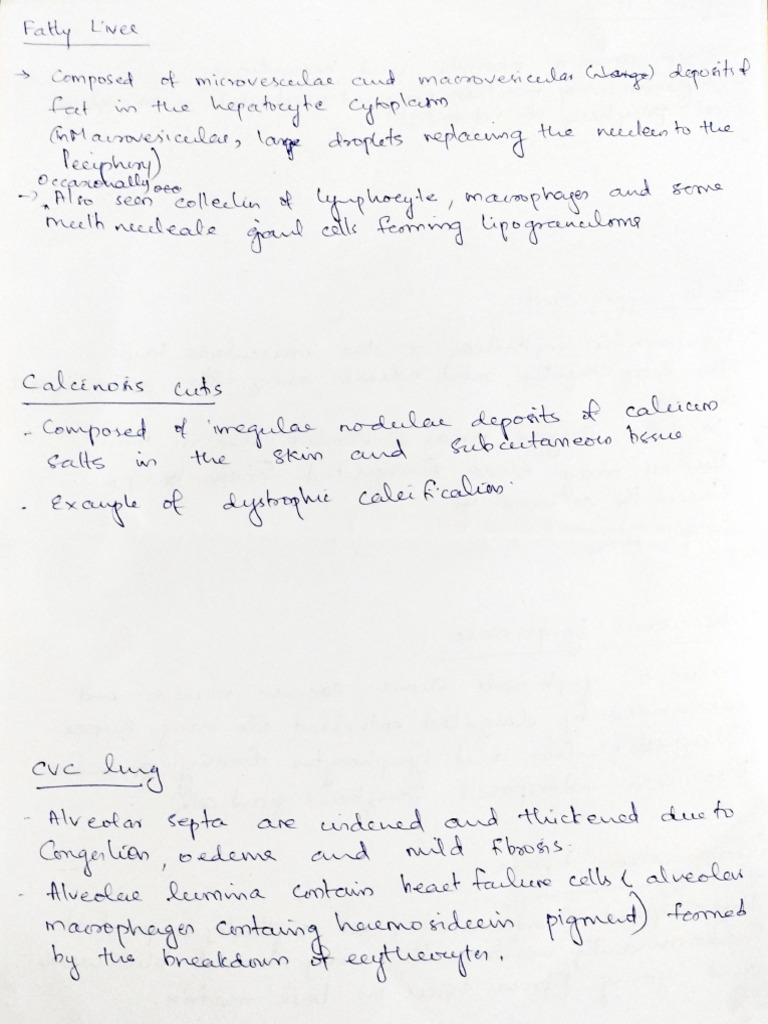 Fatty Liver
→ Composed of microvesculae and macrovesicular (large) deposits of
fat in the hepatocyte cytoplasm
(in Macrovesicular, large droplets replacing the nucleus to the
Periphery)
Occasionally
→ Also seen collection of lymphocyte, macrophages and some
multi nucleate giant cells forming lipogranuloma
Calcinosis cutis
- Composed of irregular nodular deposits of calcium
salts in the skin and subcutaneous tissue
- Example of dystrophic calcification.
CVC lung
- Alveolar septa are widened and thickened due to
Congestion, oedema and mild fibrosis.
- Alveolar lumina contain heart failure cells (alveolar
macrophages containing haemosiderin pigment) formed
by the breakdown of erythrocytes.